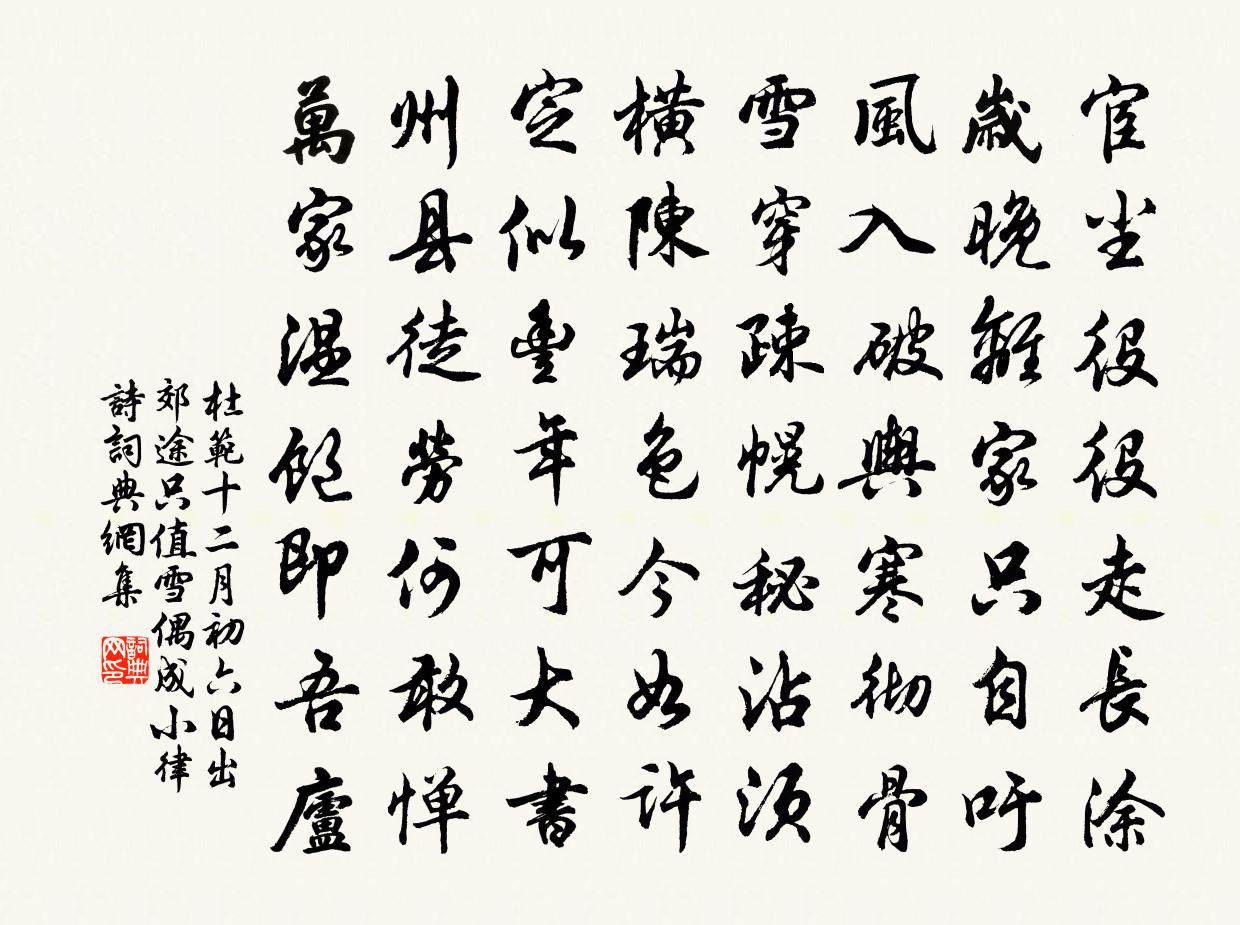 宦尘役役走長涂
歲晚離家只自吁
風入破輿寒彻骨
雪穿疎幌秘沾須
橫陳瑞色今如許
定似豐年可大書
州县徒勞何敢惮
萬家温飽即吾廬
杜範十二月初六日出
郊途只值雪偶成小律
詩詞典網集
詞典网印